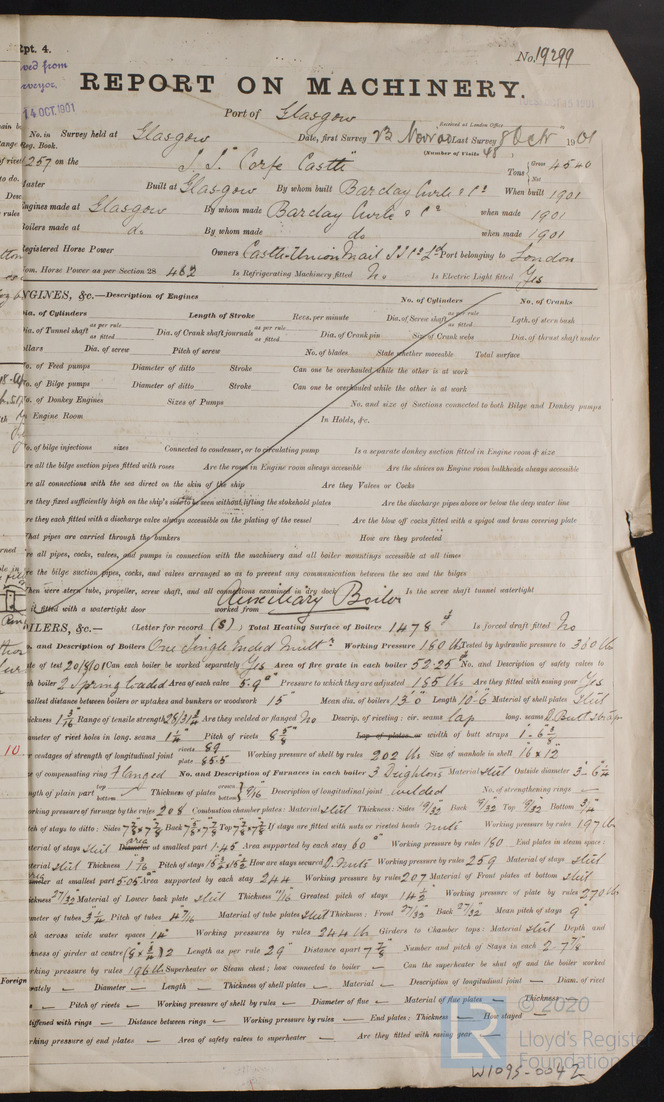 Rpt. 4.
No. 19299
ved from
rveyor.
REPORT ON MACHINERY.
14 OCT. 1901
Port of Glasgow
Received at London Office
No. in Survey held at Glasgow Date, first Survey 23 Last Survey 8 Oct 1901
Reg. Book. (Number of Visits 48)
257 on the S.S. "Corfe Castle" Tons Gross 4540
Net
Master Built at Glasgow By whom built Barclay Curle & Co When built 1901
Engines made at Glasgow By whom made Barclay Curle & Co when made 1901
Boilers made at do. By whom made do when made 1901
Registered Horse Power Owners Castle-Union Mail SS Co Ld Port belonging to London
Nom. Horse Power as per Section 28 462 Is Refrigerating Machinery fitted No Is Electric Light fitted Yes
ENGINES, &c.—Description of Engines No. of Cylinders No. of Cranks
Dia. of Cylinders Length of Stroke Revs. per minute Dia. of Screw shaft as per rule as fitted Lgth. of stern bush
Dia. of Tunnel shaft as per rule as fitted Dia. of Crank shaft journals as per rule as fitted Dia. of Crank pin Size of Crank webs Dia. of thrust shaft under
collars Dia. of screw Pitch of screw No. of blades State whether moveable Total surface
No. of Feed pumps Diameter of ditto Stroke Can one be overhauled while the other is at work
No. of Bilge pumps Diameter of ditto Stroke Can one be overhauled while the other is at work
No. of Donkey Engines Sizes of Pumps No. and size of Suctions connected to both Bilge and Donkey pumps
Engine Room In Holds, &c.
No. of bilge injections sizes Connected to condenser, or to circulating pump Is a separate donkey suction fitted in Engine room & size
re all the bilge suction pipes fitted with roses Are the roses in Engine room always accessible Are the sluices on Engine room bulkheads always accessible
re all connections with the sea direct on the skin of the ship Are they Valves or Cocks
re they fixed sufficiently high on the ship's side to be seen without lifting the stokehold plates Are the discharge pipes above or below the deep water line
re they each fitted with a discharge valve always accessible on the plating of the vessel Are the blow off cocks fitted with a spigot and brass covering plate
hat pipes are carried through the bunkers How are they protected
re all pipes, cocks, valves, and pumps in connection with the machinery and all boiler mountings accessible at all times
re the bilge suction pipes, cocks, and valves arranged so as to prevent any communication between the sea and the bilges
hen were stern tube, propeller, screw shaft, and all connections examined in dry dock Is the screw shaft tunnel watertight
it fitted with a watertight door worked from Auxiliary Boiler
OILERS, &c.— (Letter for record (S)) Total Heating Surface of Boilers 1478 Is forced draft fitted No
o. and Description of Boilers One Single Ended Mult. Working Pressure 180 lbs Tested by hydraulic pressure to 360 lbs
ate of test 20/8/01 Can each boiler be worked separately Yes Area of fire grate in each boiler 52.25 No. and Description of safety valves to
ch boiler 2 Spring loaded Area of each valve 5.9" Pressure to which they are adjusted 185 lbs Are they fitted with easing gear Yes
mallest distance between boilers or uptakes and bunkers or woodwork 15" Mean dia. of boilers 13'0" Length 10-6 Material of shell plates Steel
hickness 1 7/16 Range of tensile strength 28/31½ Are they welded or flanged No Descrip. of riveting: cir. seams lap long. seams D Butt Strap
ameter of rivet holes in long. seams 1¼" Pitch of rivets 8 5/8 Lap of plates or width of butt straps 1-6 3/8
r centages of strength of longitudinal joint rivets 89 plate 85.5 Working pressure of shell by rules 202 lbs Size of manhole in shell 16 x 12"
e of compensating ring Flanged No. and Description of Furnaces in each boiler 3 Deightons Material Steel Outside diameter 3-6¼
ngth of plain part top bottom Thickness of plates crown bottom 9/16 Description of longitudinal joint welded No. of strengthening rings —
orking pressure of furnace by the rules 208 Combustion chamber plates: Material Steel Thickness: Sides 19/32 Back 9/32 Top 9/32 Bottom ¾
tch of stays to ditto: Sides 7 7/8 x 7 7/8 Back 7 5/8 x 7 7/8 Top 7 7/8 x 7 7/8 If stays are fitted with nuts or riveted heads nuts Working pressure by rules 197 lbs
aterial of stays Steel area Diameter at smallest part 1.45 Area supported by each stay 60 Working pressure by rules 180 End plates in steam space:
aterial Steel Thickness 1 3/16 Pitch of stays How are stays secured D. Nuts Working pressure by rules 259 Material of stays Steel
ameter at smallest part 5.05 Area supported by each stay 244 Working pressure by rules 207 Material of Front plates at bottom Steel
ickness 27/32 Material of Lower back plate Steel Thickness 11/16 Greatest pitch of stays 14½ Working pressure of plate by rules 270 lbs
meter of tubes 3¼ Pitch of tubes 4 7/16 Material of tube plates Steel Thickness: Front 27/32 Back 27/32 Mean pitch of stays 9"
ch across wide water spaces 14" Working pressures by rules 244 lbs Girders to Chamber tops: Material Steel Depth and
ckness of girder at centre (8 x ¾) 2 Length as per rule 29" Distance apart 7 7/8 Number and pitch of Stays in each 2 - 7 7/8
rking pressure by rules 196 lbs Superheater or Steam chest; how connected to boiler — Can the superheater be shut off and the boiler worked
arately — Diameter — Length — Thickness of shell plates — Material — Description of longitudinal joint — Diam. of rivet
s — Pitch of rivets — Working pressure of shell by rules — Diameter of flue — Material of flue plates — Thickness —
stiffened with rings — Distance between rings — Working pressure by rules — End plates: Thickness — How stayed —
rking pressure of end plates — Area of safety valves to superheater — Are they fitted with easing gear —
10
Foreign
© 2020
LR
Lloyd's Register
Foundation
W1095-0042